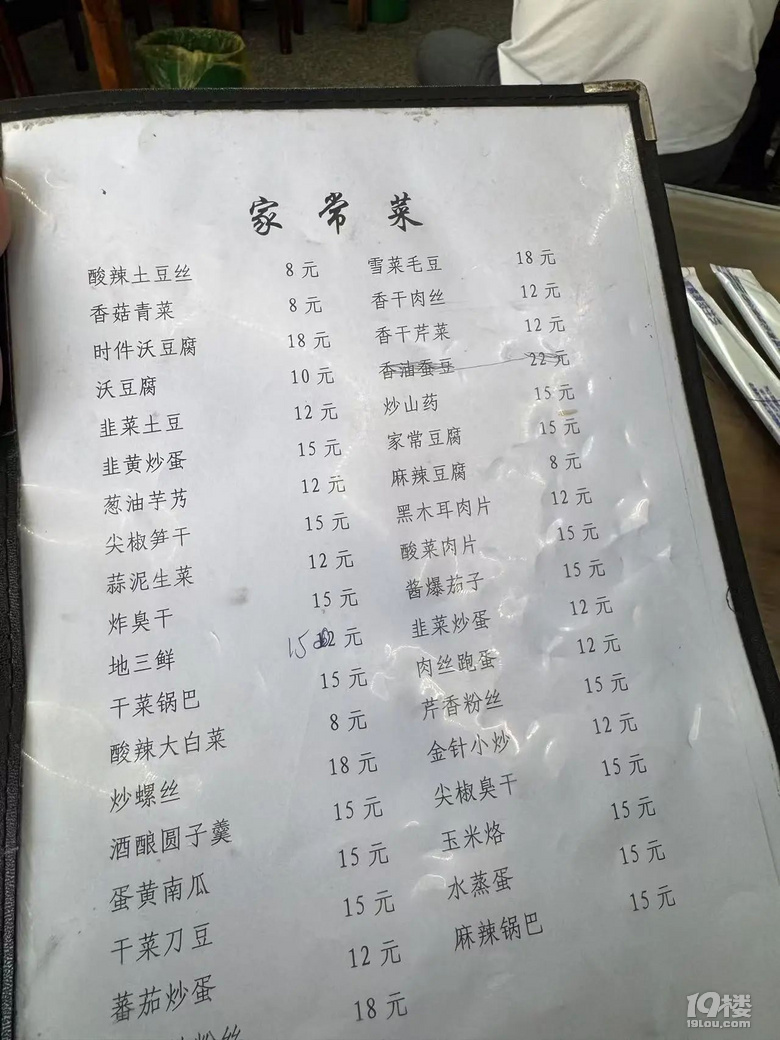 家常菜
酸辣土豆丝 8元
香菇青菜 8元
时件沃豆腐 18元
沃豆腐 10元
韭菜土豆 12元
韭黄炒蛋 15元
葱油芋艿 12元
尖椒笋干 15元
蒜泥生菜 12元
炸臭干 15元
地三鲜 15 12元
干菜锅巴 15元
酸辣大白菜 8元
炒螺丝 18元
酒酿圆子羹 15元
蛋黄南瓜 15元
干菜刀豆 15元
蕃茄炒蛋 12元
粉丝 18元
雪菜毛豆 18元
香干肉丝 12元
香干芹菜 12元
香油蚕豆 22元
炒山药 15元
家常豆腐 15元
麻辣豆腐 8元
黑木耳肉片 12元
酸菜肉片 15元
酱爆茄子 15元
韭菜炒蛋 12元
肉丝跑蛋 12元
芹香粉丝 15元
金针小炒 12元
尖椒臭干 15元
玉米烙 15元
水蒸蛋 15元
麻辣锅巴 15元
19楼
19lou.com